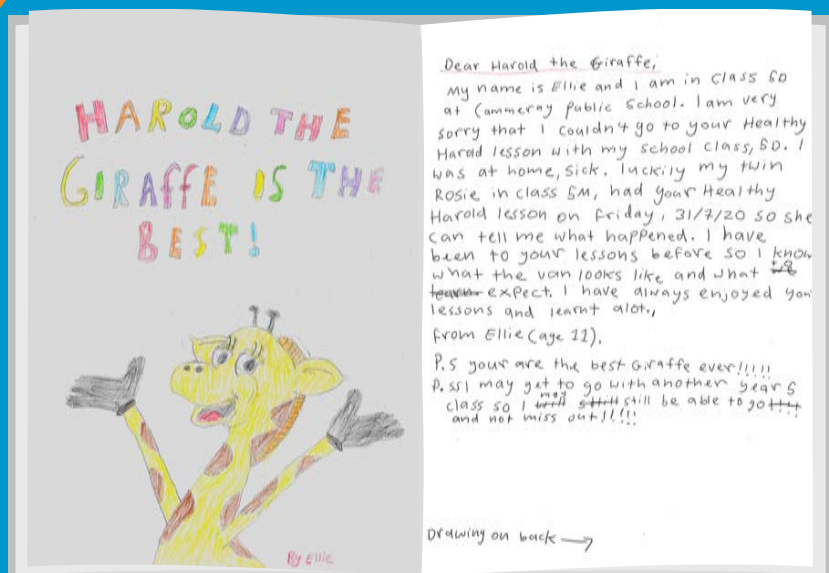 HAROLD THE
GIRAFFE IS THE
BEST!
By Ellie
Dear Harold the Giraffe,
My name is Ellie and I am in class 5D
at Cammeray Public School. I am very
sorry that I couldn't go to your Healthy
Harold lesson with my school class, 5D. I
was at home, sick. luckily my twin
Rosie in class 5M, had your Healthy
Harold lesson on Friday, 31/7/20 so she
can tell me what happened. I have
been to your lessons before so I know
what the van looks like and what to
learn expect. I have always enjoyed you
lessons and learnt alot.,
from Ellie (age 11),
P.S your are the best Giraffe ever!!!!!
P.SS I may get to go with another year 5
class so I will may still still be able to go!!!!
and not miss out!!!!!
Drawing on back →